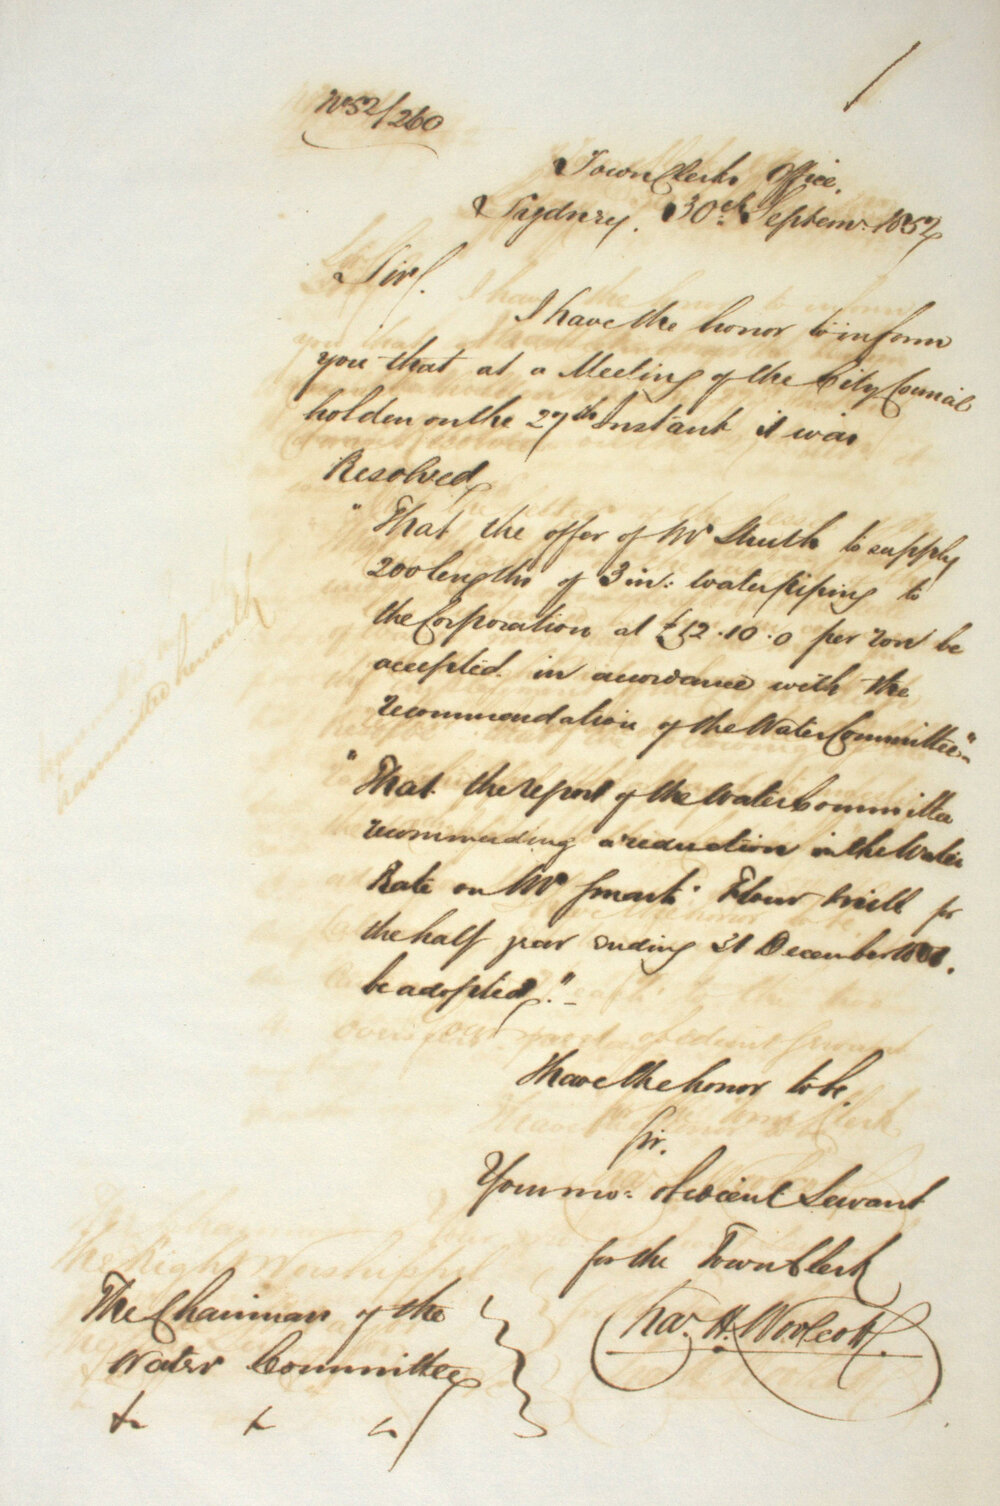 No 52/260
Town Clerks Office.
Sydney. 30th Septemr. 1852
Sir,
I have the honor to inform
you that at a Meeting of the City Council
holden on the 27th Instant it was
Resolved
"That the offer of Mr Struth to supply
200 lengths of 3 in: water piping to
the Corporation at £12.10.0 per Ton be
accepted in accordance with the
recommendation of the Water Committee"
"That the report of the Water Committee
recommending a reduction in the Water
Rate on Mr Smarts Flour Mill for
the half year ending 31 December
be adopted."
I have the honor to be,
Sir,
Your mo: obedient Servant
for the Town Clerk
Chas. H. Woolcott
The Chairman of the
Water Committee